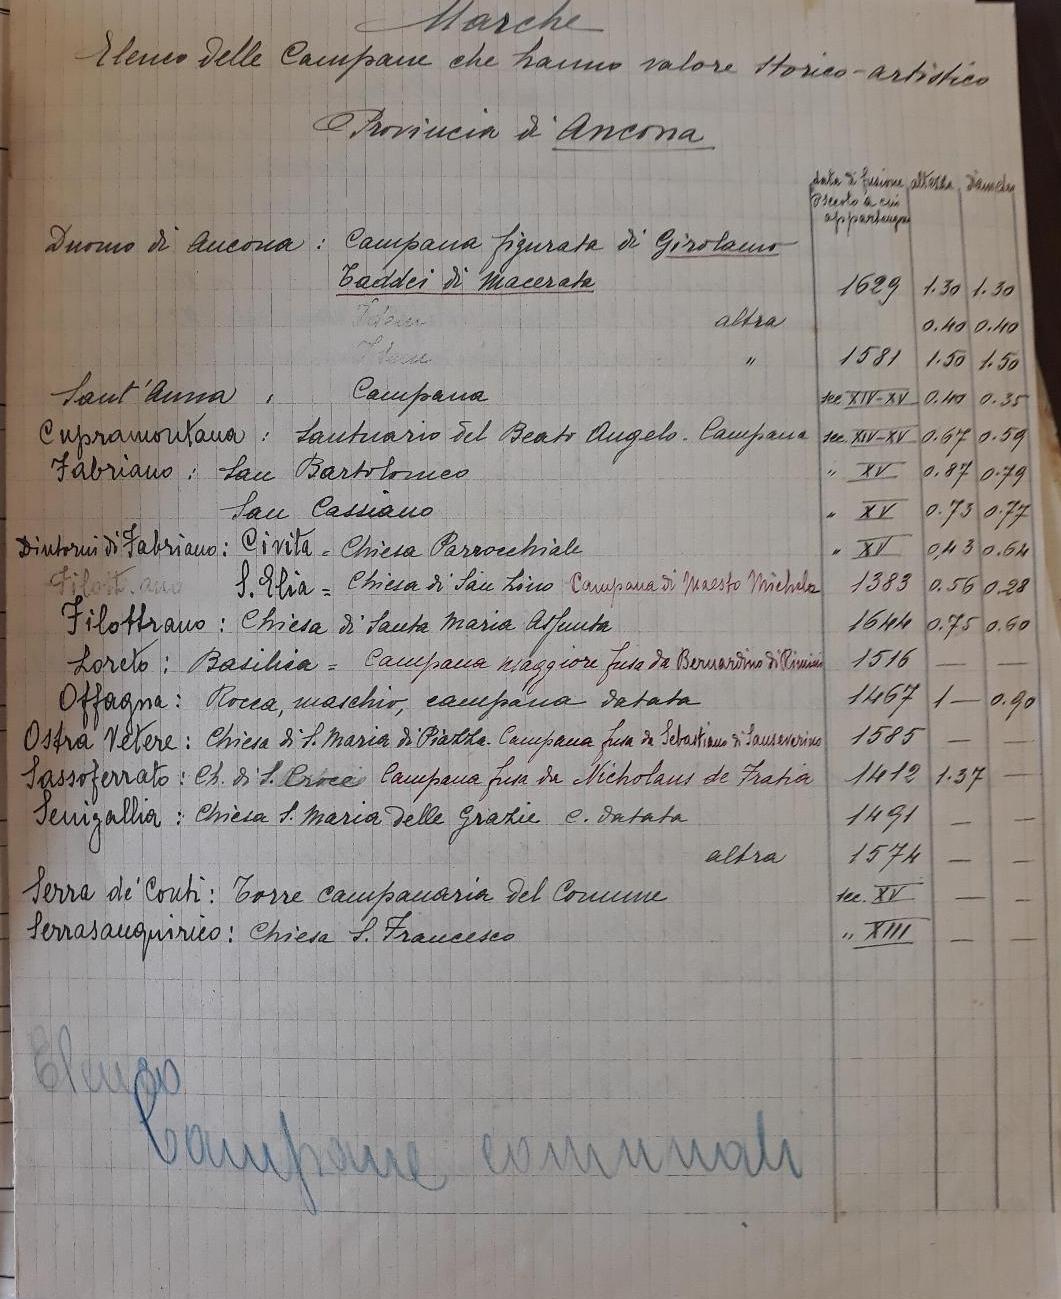 Marche
Elenco delle Campane che hanno valore storico-artistico
Provincia di Ancona
data di fusione altezza diametro
o secolo a cui
appartengono
Duomo di Ancona : Campana figurata di Girolamo
Taddei di Macerata 1629 1.30 1.30
Idem altra 0.40 0.40
Idem " 1581 1.50 1.50
Sant'Anna , Campana sec. XIV-XV 0.40 0.35
Cupramontana : Santuario del Beato Angelo. Campana sec. XIV-XV 0.67 0.59
Fabriano : San Bartolomeo " XV 0.87 0.79
San Cassiano " XV 0.73 0.77
Dintorni di Fabriano : Civita = Chiesa Parrocchiale " XV 0,43 0.64
Filottrano S. Elia = Chiesa di San Lino Campana di Maesto Michele 1383 0.56 0.28
Filottrano : Chiesa di Santa Maria Assunta 1644 0.75 0.60
Loreto : Basilica = Campana maggiore fusa da Bernardino di Rimini 1516 — —
Offagna : Rocca, maschio, campana datata 1467 1 — 0.90
Ostra Vetere : Chiesa di S. Maria di Piazza. Campana fusa da Sebastiano di Sanseverino 1585 — —
Sassoferrato : Ch. di S. Croce Campana fusa da Nicholaus de Fratia 1412 1.37 —
Senigallia : Chiesa S. Maria delle Grazie c. datata 1491 — —
altra 1574 — —
Serra de' Conti : Torre campanaria del Comune sec. XV — —
Serrasanquirico : Chiesa S. Francesco " XIII — —
Elenco
Campane comunali